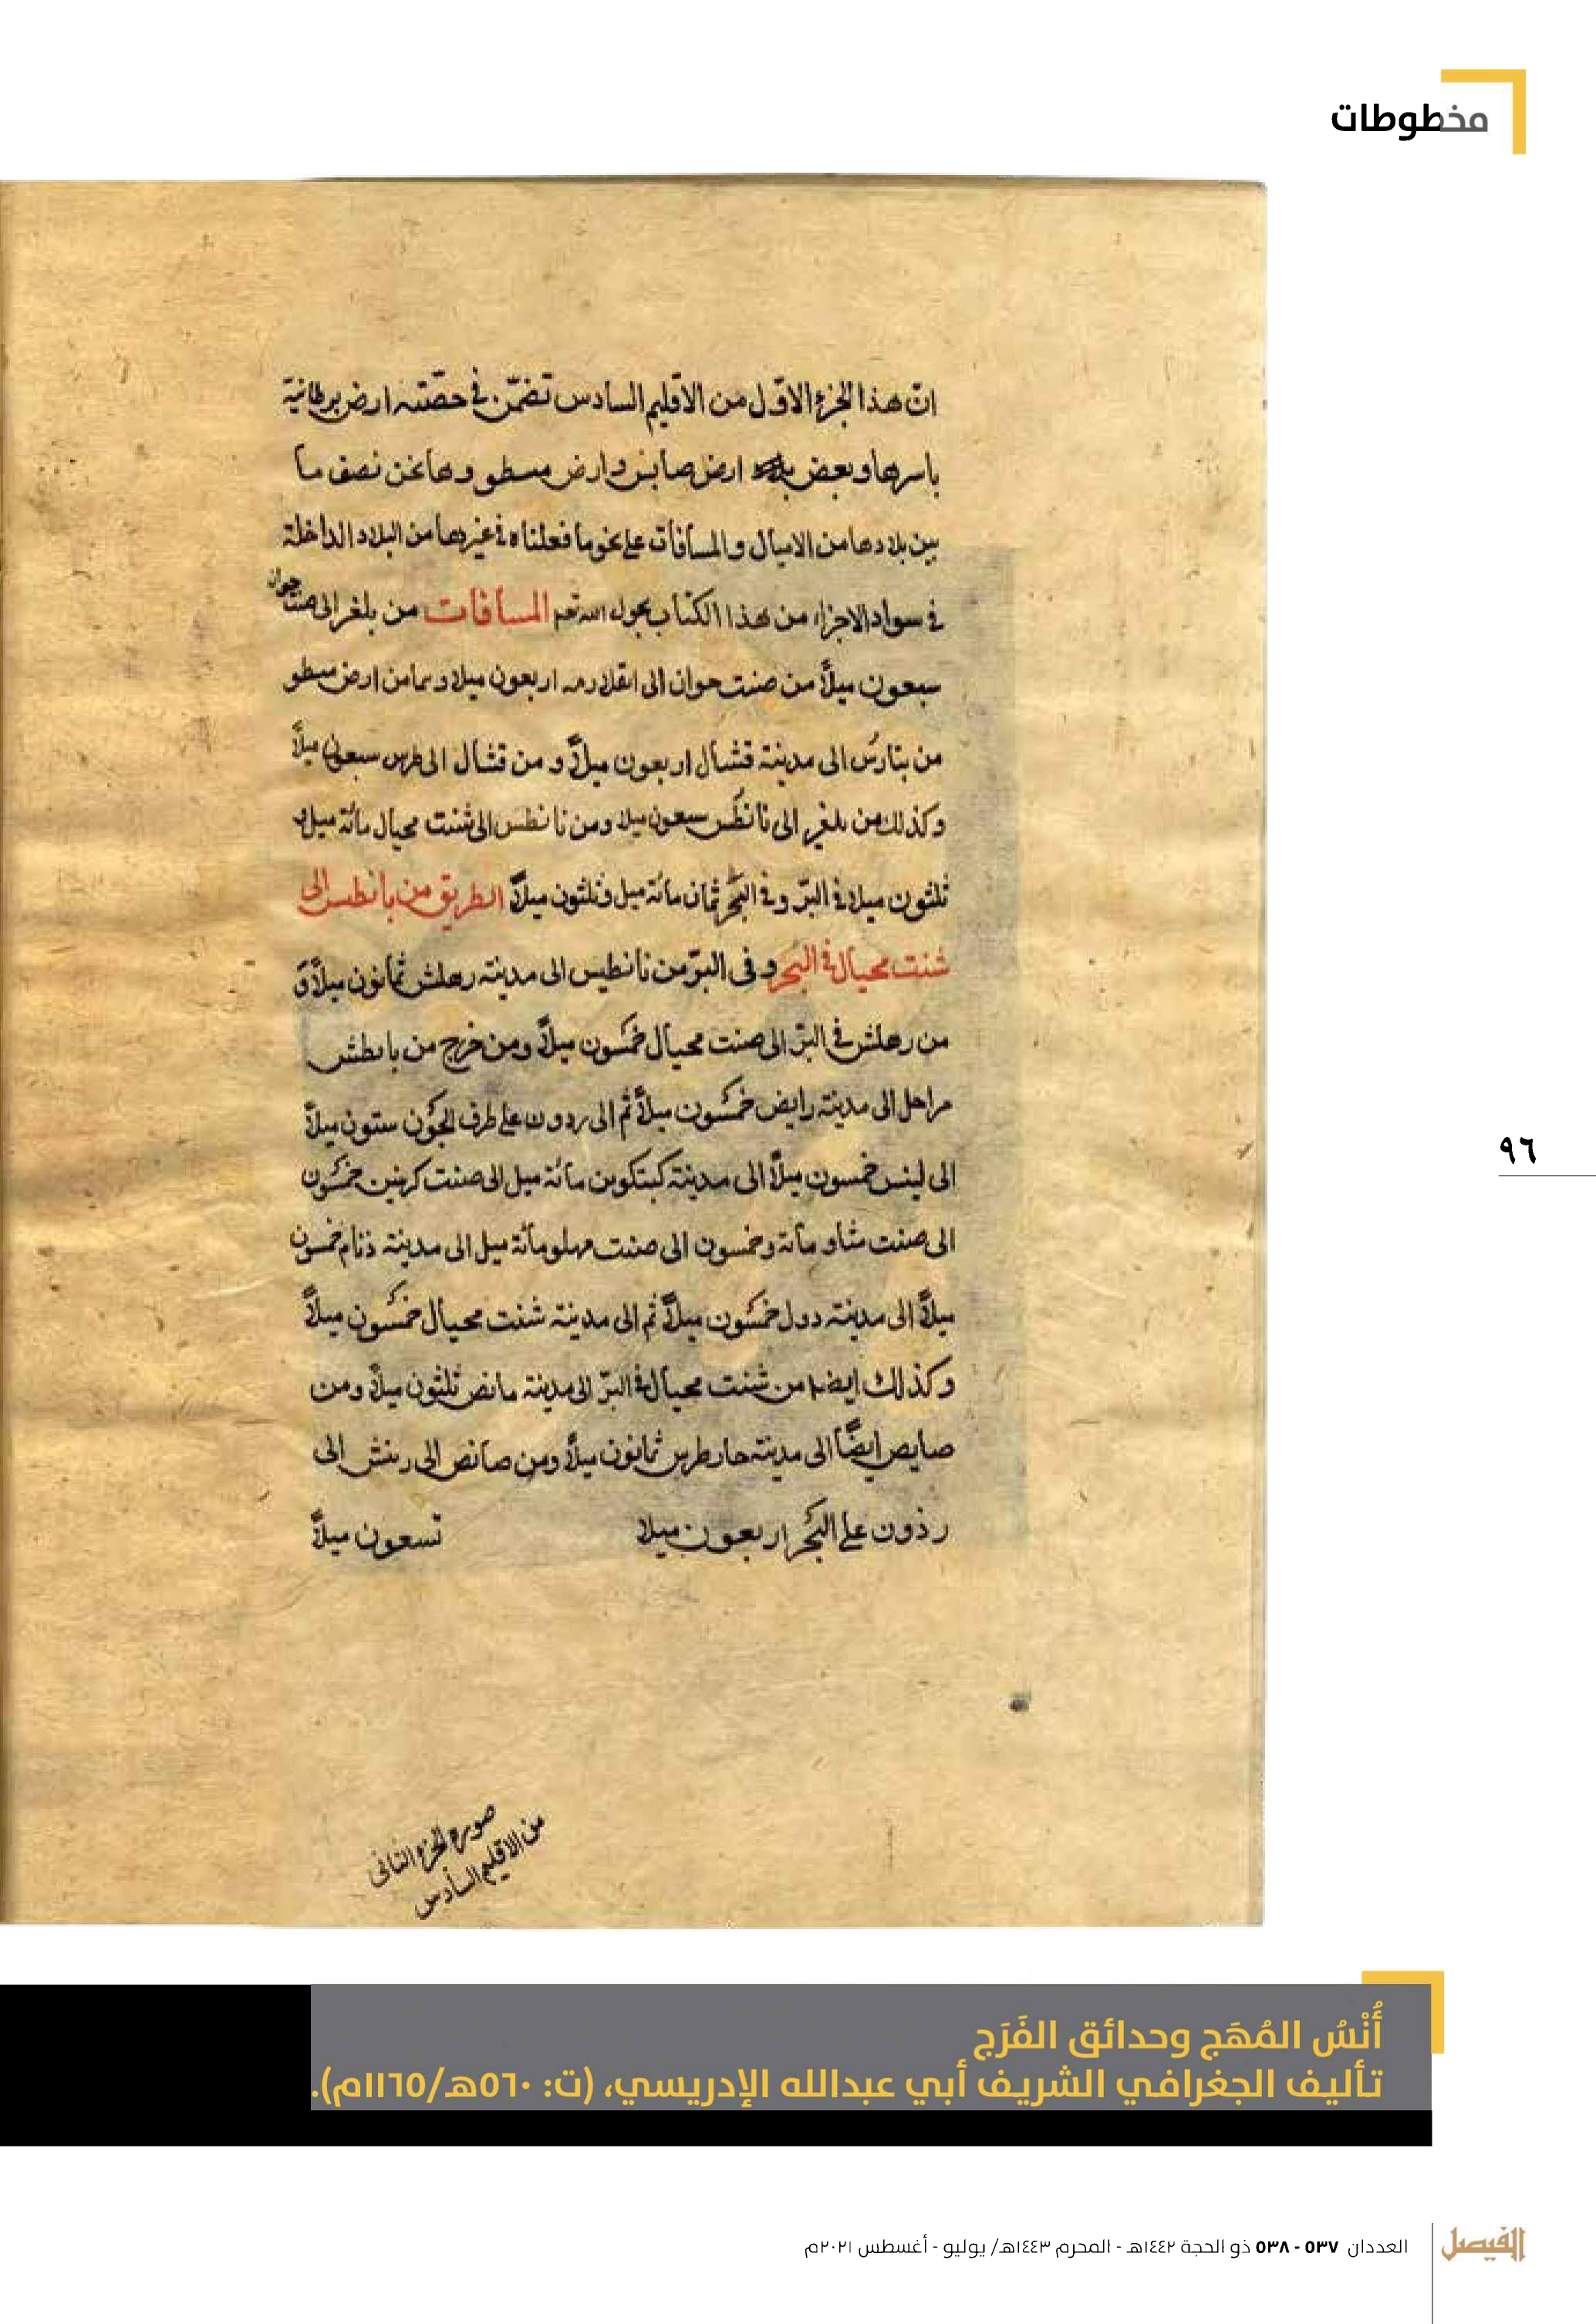 مخطوطات
ان هذا الجزء الاول من الاقليم السادس تضمن في حصته ارض برطانية
باسرها وبعض ارض صابس وارض مسطو وها نحن نصف ما
بين بلادها من الاميال والمسافات على نحو ما فعلناه في غيرها من البلاد الداخلة
في سواد الاجزاء من هذا الكتاب بحول الله تعم المسافات من بلغر الى صنت جوان
سبعون ميلاً من صنت جوان الى اربعون ميلا من ارض مسطو
من بتارس الى مدينة قشال اربعون ميلاً و من قشال الى طرس سبعون ميلاً
وكذلك من بلغر الى نانطس سبعون ميلا ومن نانطس الى شنت محيال مائة ميل و
ثلثون ميلا في البرّ وفي البحر ثمان مائة ميل وثلثون ميلاً الطريق من بانطس الى
شنت محيال في البحر وفى البرّ من نانطيس الى مدينة رهلش ثمانون ميلاً و
من رهلش في البرّ الى صنت محيال خمسون ميلاً ومن خرج من بابطش
مراحل الى مدينة رايض خمسون ميلاً ثم الى ردون على طرف الجون ستون ميلاً
الى لينس خمسون ميلاً الى مدينة كبتكوين مائة ميل الى صنت كرنين خمسون
الى صنت مائة وخمسون الى صنت مهلو مائة ميل الى مدينة ذنام خمسون
ميلاً الى مدينة دول خمسون ميلاً ثم الى مدينة شنت محيال خمسون ميلاً
وكذلك ايضا من شنت محيال في البرّ الى مدينة مانص ثلثون ميلاً ومن
صايص ايضاً الى مدينة حارطرس ثمانون ميلاً ومن صانص الى رينش الى
رذون على البحر اربعون ميلا تسعون ميلاً
صورة الجزء الثانى
من الاقليم السادس
٩٦
أُنْسُ المُهَج وحدائق الفَرَج
تأليف الجغرافي الشريف أبي عبدالله الإدريسي، (ت: ٥٦٠هـ/١١٦٥م).
العددان ٥٣٧ - ٥٣٨ ذو الحجة ١٤٤٢هـ - المحرم ١٤٤٣هـ/ يوليو - أغسطس ٢٠٢١م
الفيصل